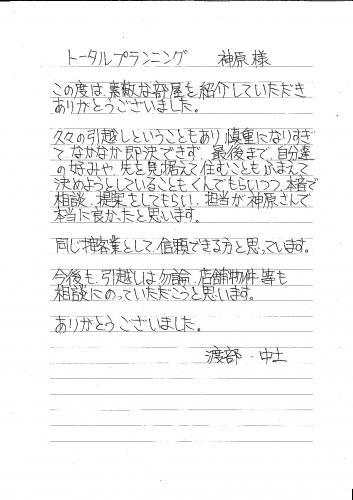 トータルプランニング 神原様
この度は、素敵な部屋を紹介していただき
ありがとうございました。
久々の引越しということもあり、慎重になりすぎ
て、なかなか即決できず、最後まで、自分達
の好みや、先を見据えて住むこともふまえて
決めようとしていることも、くんでもらいつつ、本音で
相談、提案をしてもらい、担当が神原さんで
本当に良かったと思います。
同じ接客業として、信頼できる方と思っています。
今後も、引越しは勿論、店舗物件等も
相談にのっていただこうと思います。
ありがとうございました。
渡部・中土